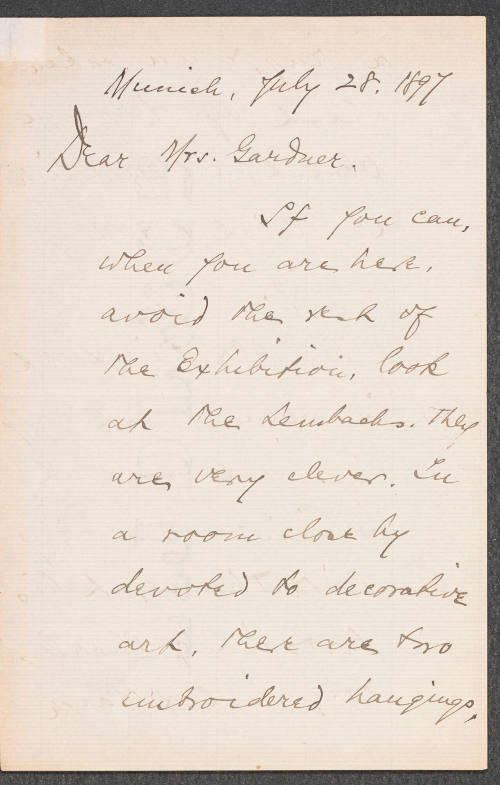 Munich, July 28. 1897
Dear Mrs. Gardner.
If you can,
when you are here,
avoid the rest of
the Exhibition, look
at the Lenbachs. They
are very clever. In
a room close by
devoted to decorative
art, there are two
embroidered hangings,